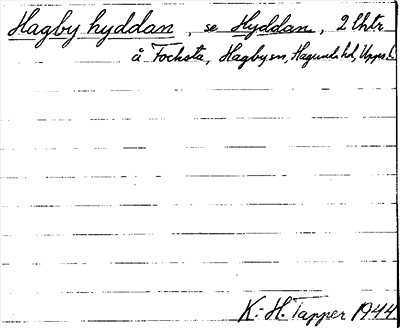 Hagby hyddan, se Hyddan, 2 lhtr
å Focksta, Hagby sn, Hagunda hd, Upps. l.
K.-H. Tapper 1944